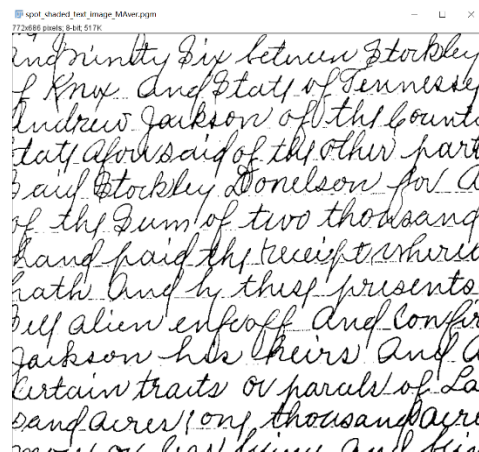 spot_shaded_text_image_MAver.pgm
772x686 pixels; 8-bit; 517K
and ninity Six between Stockley
of Knox And State of Tennessey
Andrew Jackson of the Count
tate aforesaid of the other part
Said Stockley Donelson for a
of the Sum of two thousand
hand paid the receipt where
hath And by these presents
Sell alien enfeoff And Confir
Jackson his heirs And a
Certain traits or parcels of La
sand acres one thousand acre